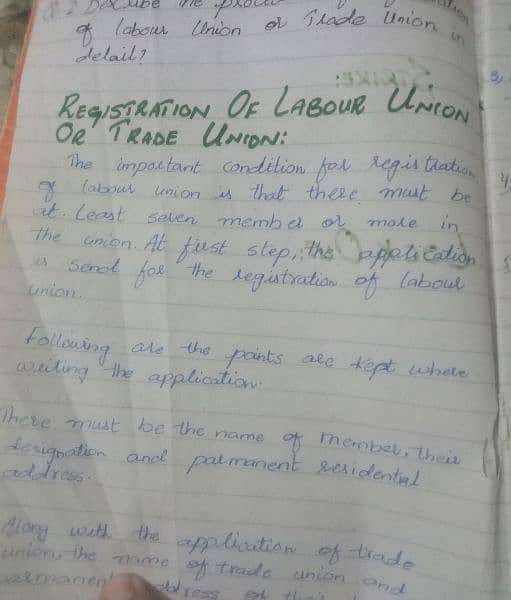 Describe the
of labour Union or Trade Union in
detail?
STRIKE:
3,
REGISTRATION OF LABOUR UNION
OR TRADE UNION:
The important condition for registration
4,
of labour union is that there must be
at. Least seven member or more in
the union. At first step, the application
is send for the registration of labour
union.
Following are the points are kept where
writing the application.
There must be the name of member, their
designation and parmanent residental
address.
Along with the application of trade
union, the name of trade union and
parmanent address of their